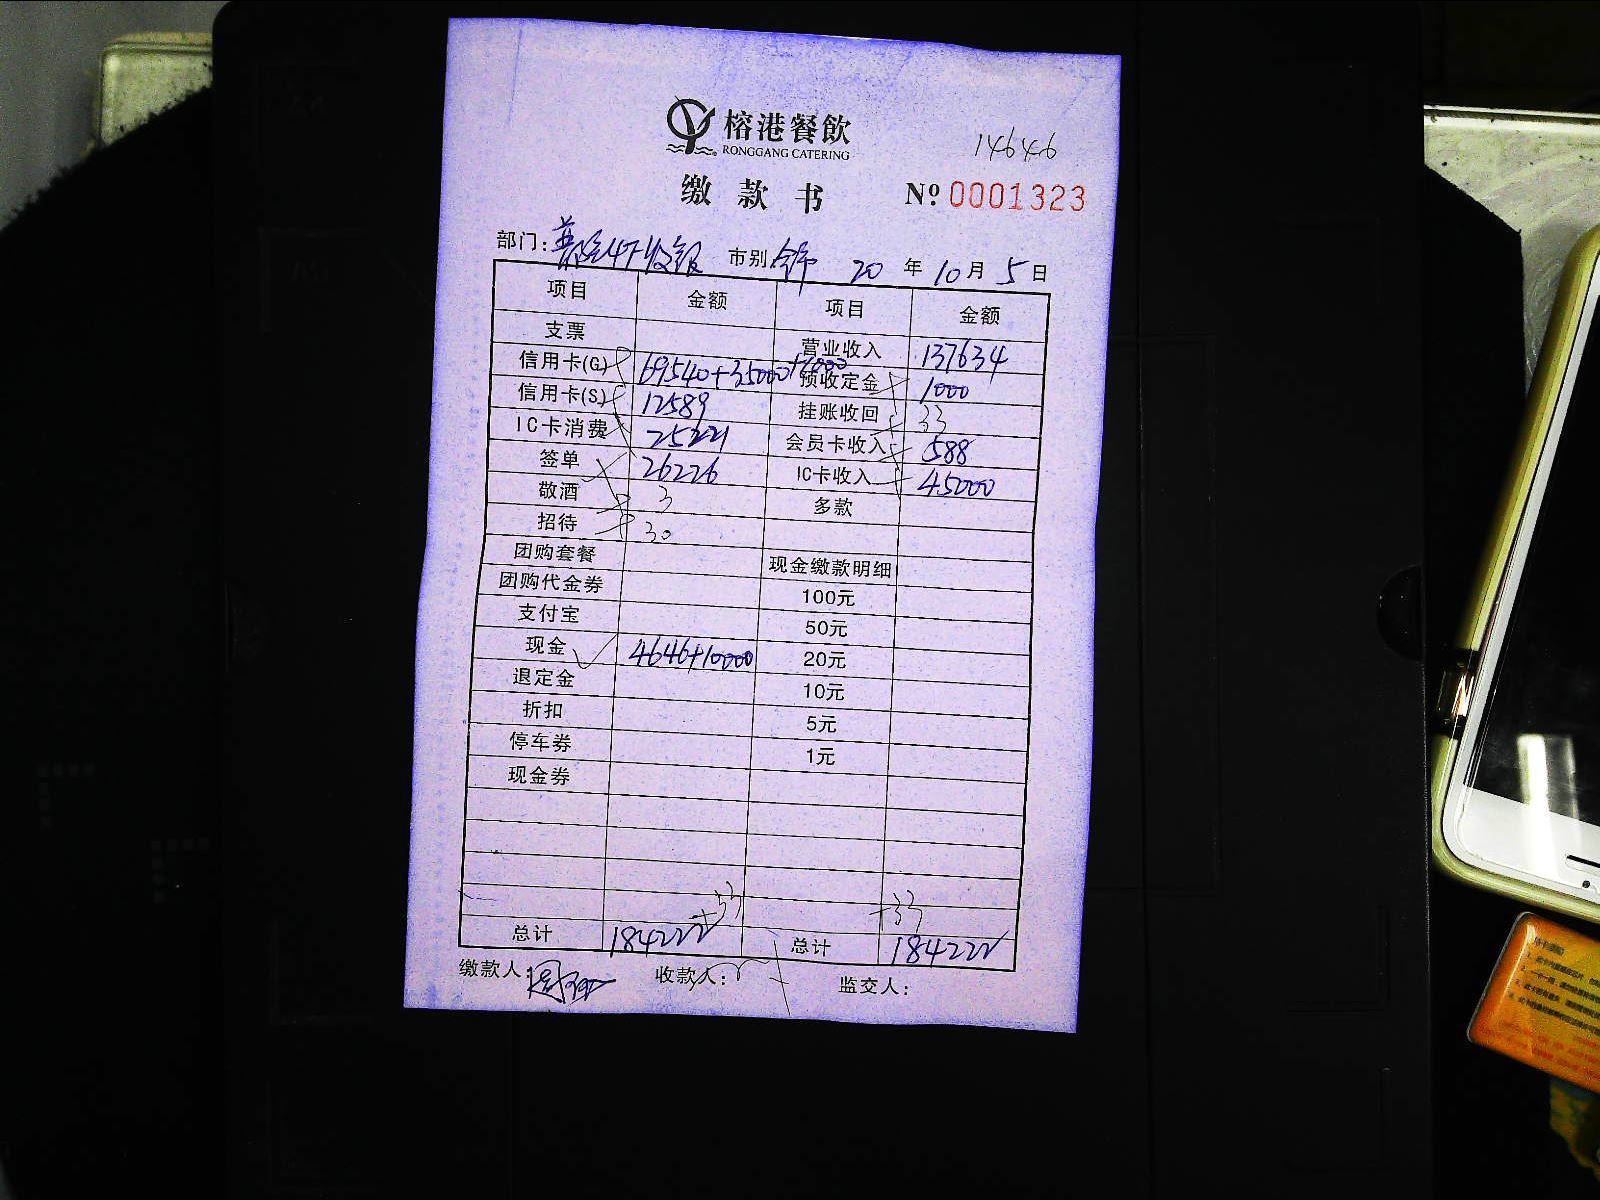 榕港餐飲
RONGGANG CATERING
14646
缴款书 Nº 0001323
部门: 收银 市别 20 年 10 月 5 日
项目 金额 项目 金额
支票 营业收入 137634
信用卡(G) 69540+35000+1000 预收定金 1000
信用卡(S) 12589 挂账收回 33
IC卡消费 25221 会员卡收入 588
签单 26226 IC卡收入 45000
敬酒 3 多款
招待 30
团购套餐 现金缴款明细
团购代金券 100元
支付宝 50元
现金 4646+10000 20元
退定金 10元
折扣 5元
停车券 1元
现金券
+33 +33
总计 184222 总计 184222
缴款人: 收款人: 监交人: